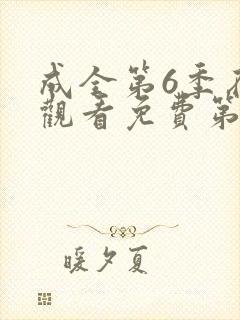 成全第6季在
觀看免費第
暖夕夏